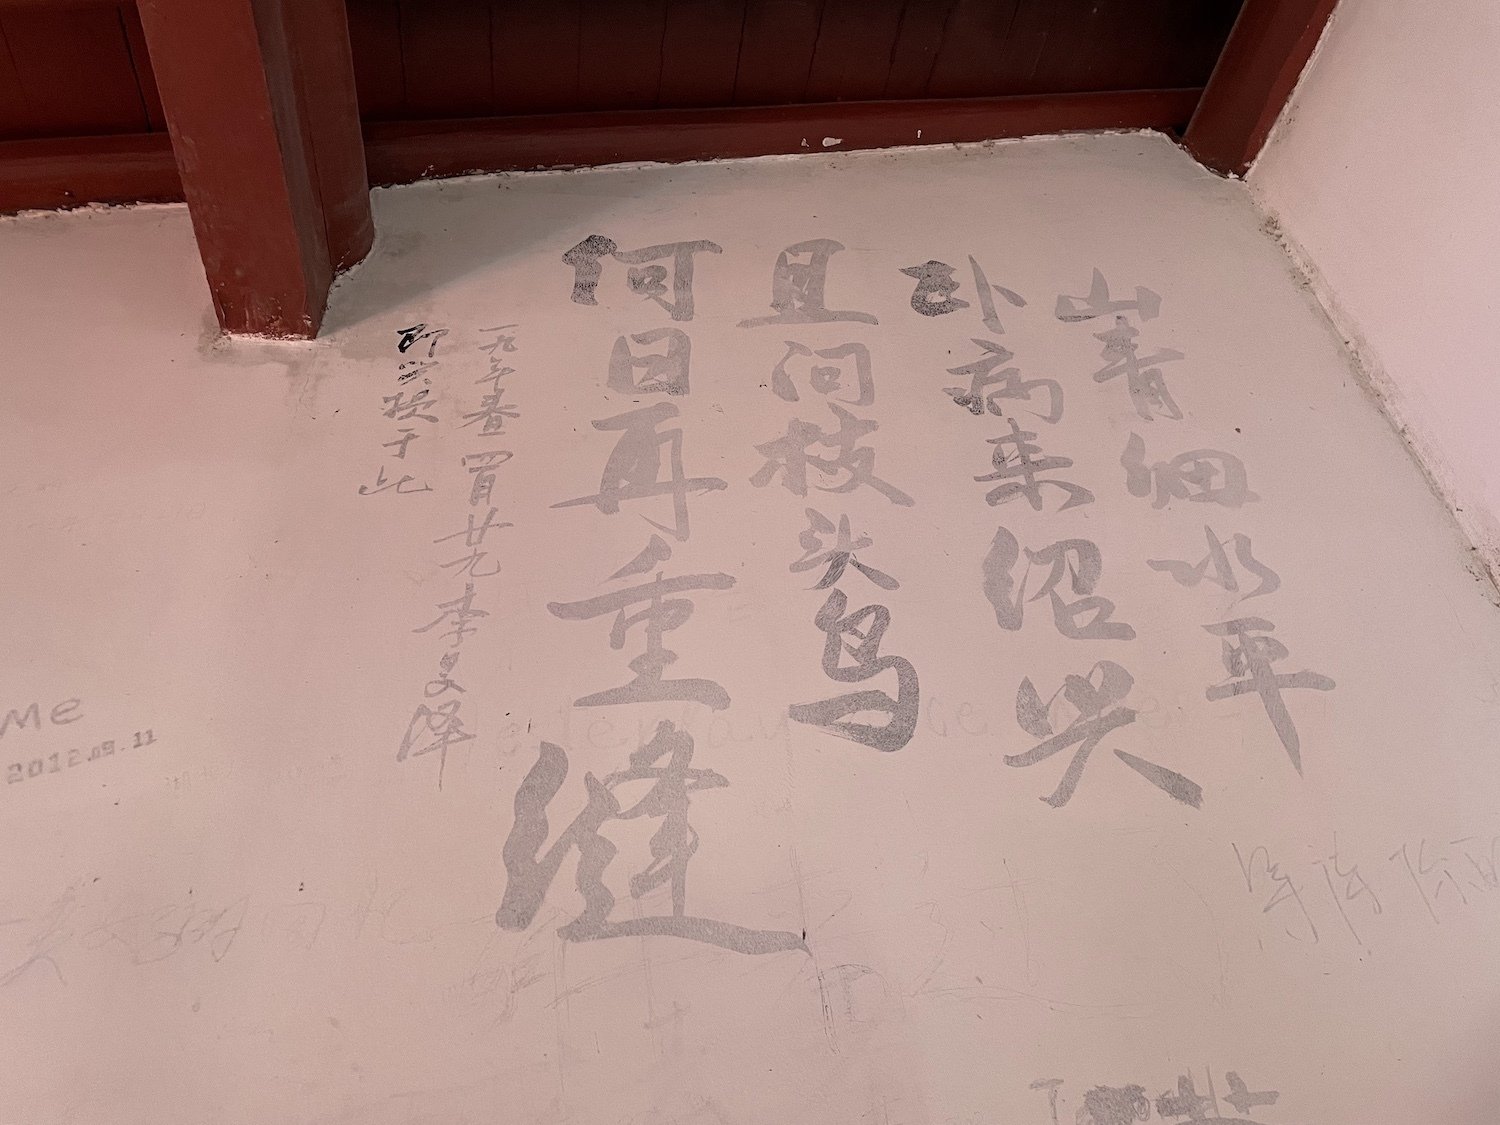 山青细水平
卧病来绍兴
且问枝头鸟
何日再重缝
一九年春 四月廿九 李文泽
即兴题于此
me
2012.09.11